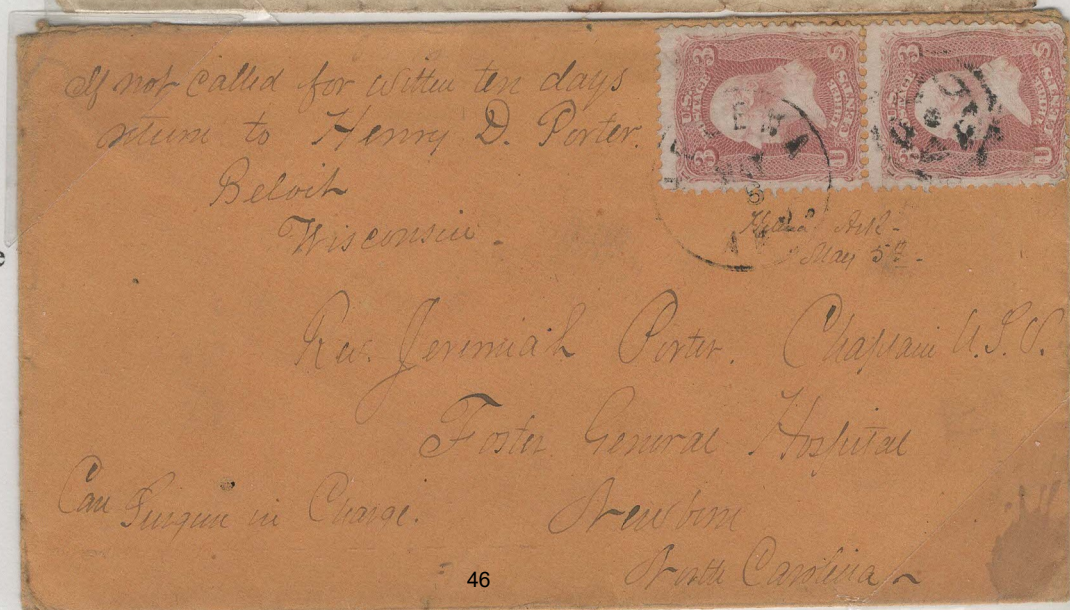 If not called for within ten days
return to Henry D. Porter.
Beloit
Wisconsin.
Ark-
May 5th-
Rev. Jeremiah Porter. Chaplain U.S.V.
Foster General Hospital
Care Surgeon in Charge.
Newbern
North Carolina
46